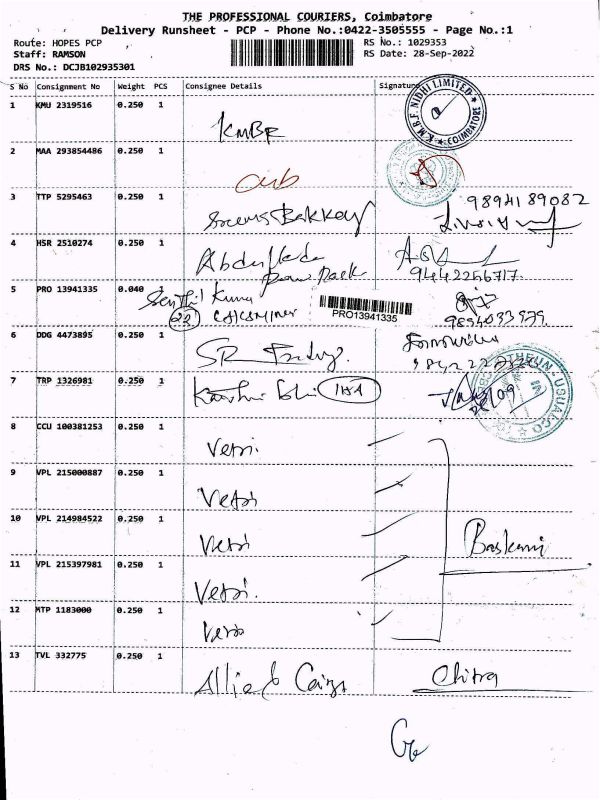 THE PROFESSIONAL COURIERS, Coimbatore
Delivery Runsheet - PCP - Phone No.:0422-3505555 - Page No.:1
Route: HOPES PCP
RS No.: 1029353
Staff: RAMSON
RS Date: 28-Sep-2022
DRS No.: DCJB102935301
S No Consignment No Weight PCS Consignee Details Signature
K.M.B.F. NIDHI LIMITED COIMBATORE
1 KMU 2319516 0.250 1
KMBF
2 MAA 293854486 0.250 1
cub
3 TTP 5295463 0.250 1
9894189082
4 HSR 2510274 0.250 1
Abdul
9442256717
5 PRO 13941335 0.040 1
Senthil Kumar
22
PRO13941335
6 DDG 4473895 0.250 1
SR
7 TRP 1326981 0.250 1
8 CCU 100381253 0.250 1
Vetri.
9 VPL 215000887 0.250 1
Vetri
10 VPL 214984522 0.250 1
Vetri
Baskani
11 VPL 215397981 0.250 1
Vetri.
12 MTP 1183000 0.250 1
13 TVL 332775 0.250 1
Allied
Chitra